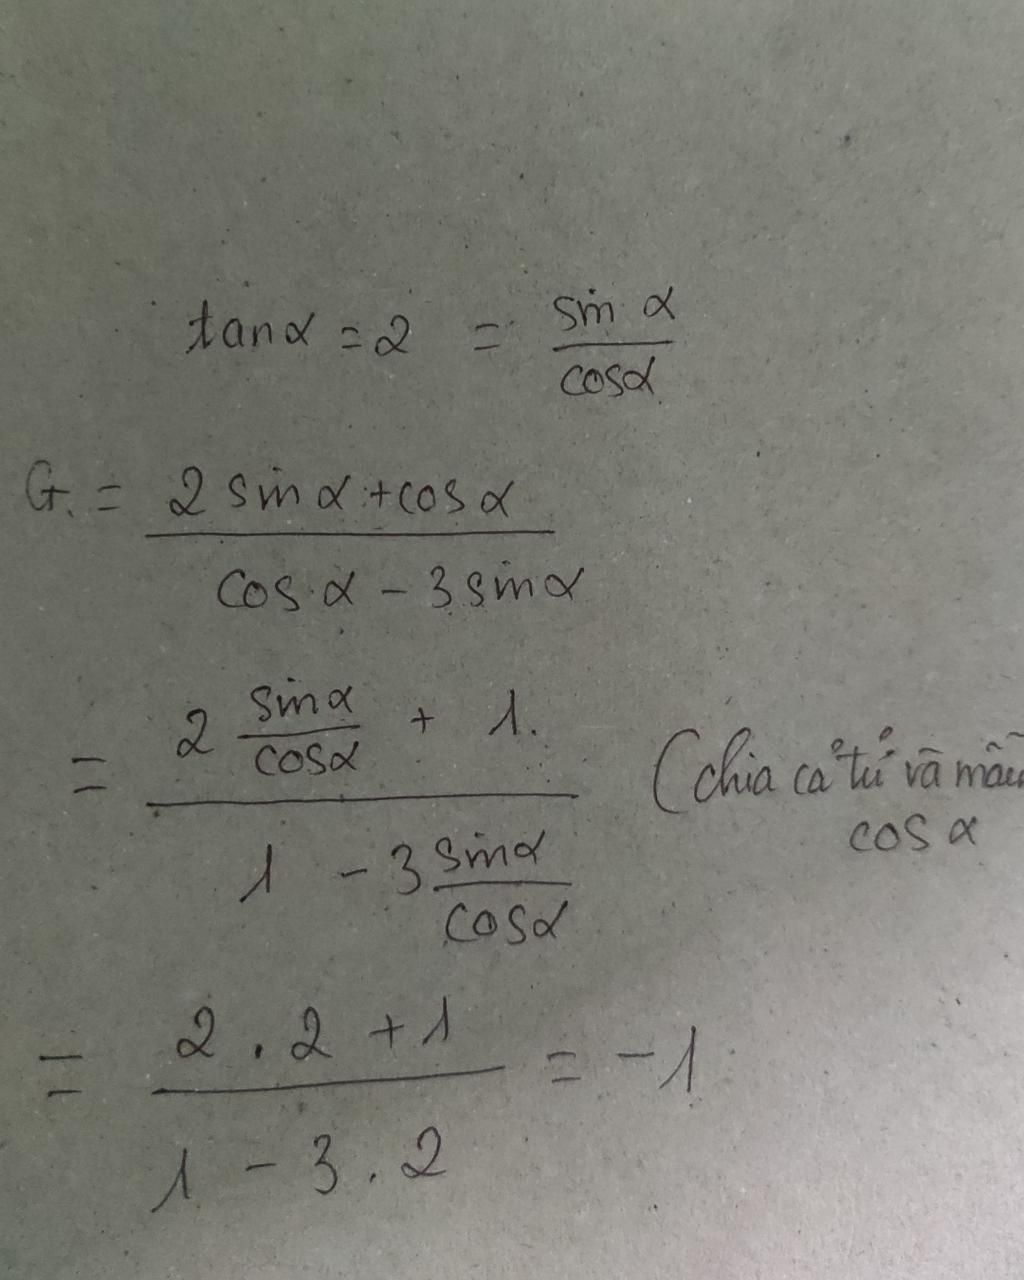 tanα = 2 = sin α / cosα
G = 2 sin α + cos α / cos α - 3 sin α
= 2 sinα / cosα + 1 / 1 - 3 sinα / cosα (chia cả tử và mẫu
cos α
= 2 . 2 + 1 / 1 - 3 . 2 = -1